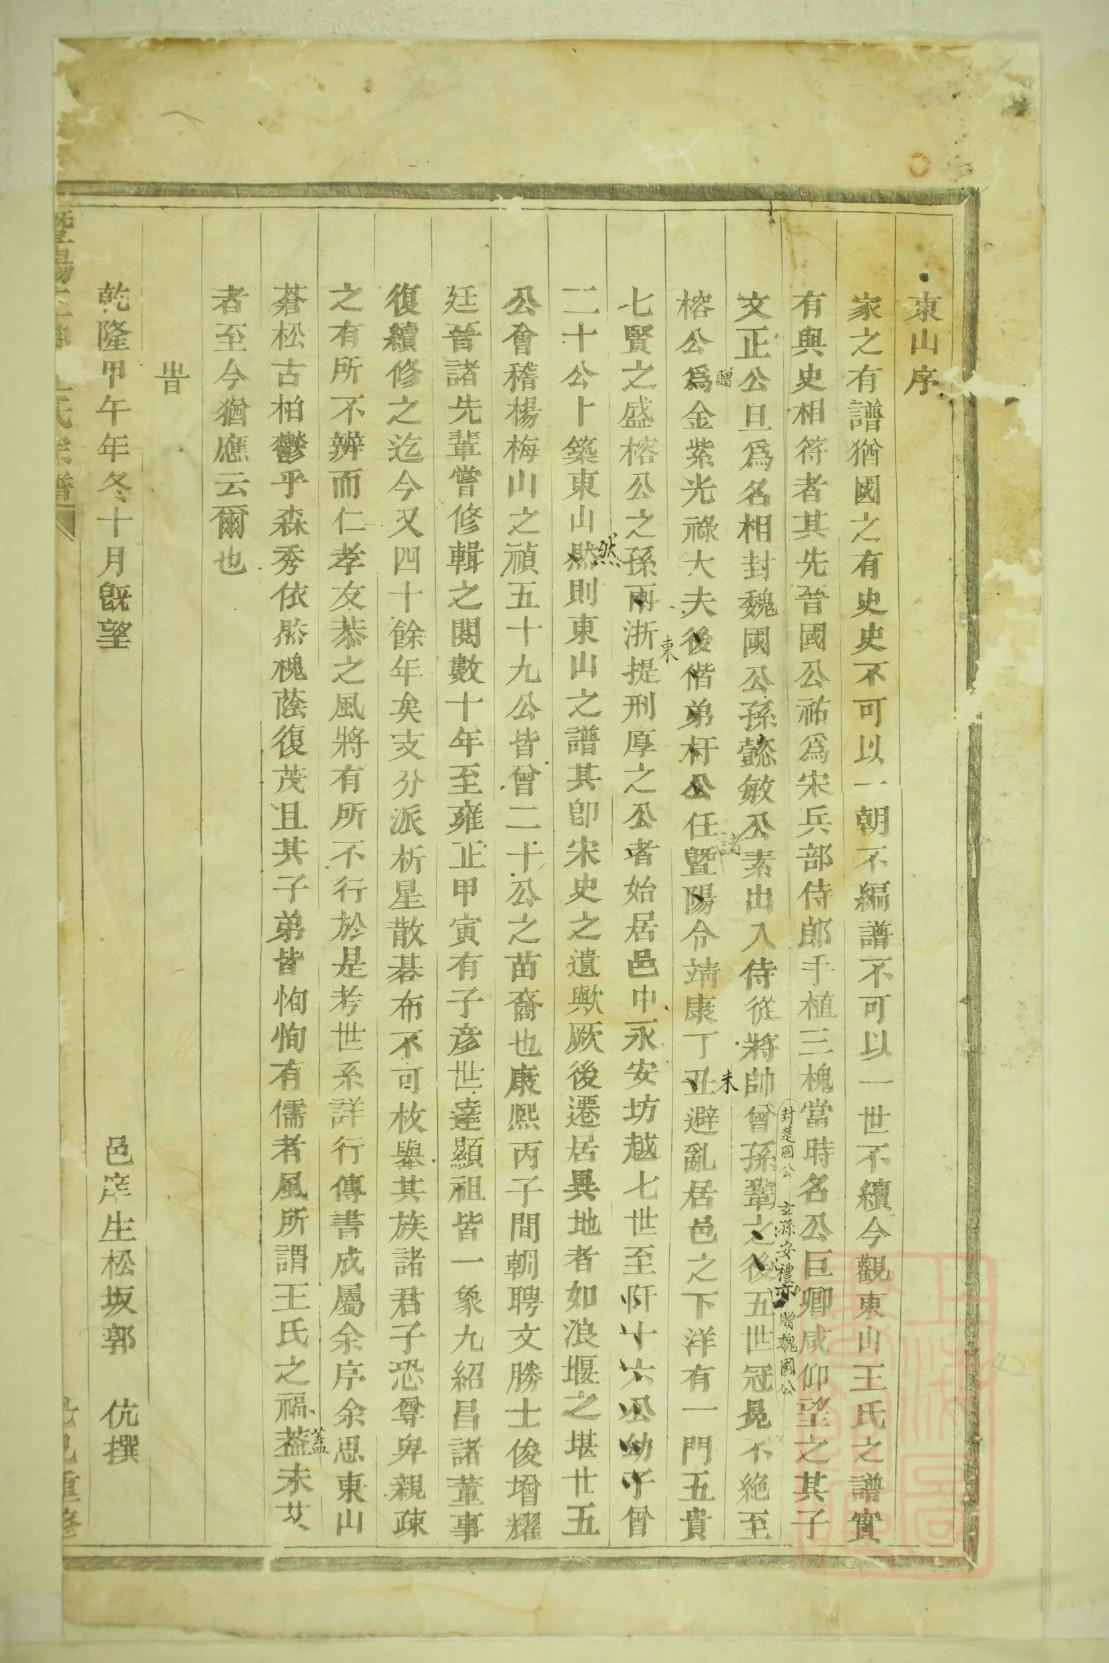 東山序
家之有譜猶國之有史史不可以一朝不編譜不可以一世不續今觀東山王氏之譜實
有與史相符者其先晉國公祐爲宋兵部侍郎手植三槐當時名公巨卿咸仰望之其子
文正公旦爲名相封魏國公孫懿敏公素出入侍從將帥曾孫鞏之後五世冠冕不絕至
封楚國公 玄孫安禮亦贈魏國公
榕公爲金紫光祿大夫後偕弟杅公任曁陽令靖康丁丑避亂居邑之下洋有一門五貴
贈
諸
未
七賢之盛榕公之孫兩浙提刑厚之公者始居邑中永安坊越七世至阡十六公幼子曾
東
二十公卜築東山㷊則東山之譜其卽宋史之遺歟厥後遷居異地者如浪堰之堪廿五
然
公會稽楊梅山之禎五十九公皆曾二十公之苗裔也康熙丙子間朝聘文勝士俊增耀
廷晉諸先輩嘗修輯之閱數十年至雍正甲寅有子彥世達顯祖皆一象九紹昌諸董事
復續修之迄今又四十餘年矣支分派析星散碁布不可枚舉其族諸君子恐尊卑親疎
之有所不辨而仁孝友恭之風將有所不行於是考世系詳行傳書成屬余序余思東山
蒼松古柏鬱乎森秀依㷊槐蔭復茂且其子弟皆恂恂有儒者風所謂王氏之福葢未艾
蓋
者至今猶應云爾也
旹
乾隆甲午年冬十月旣望 邑庠生松坂郭 伉撰